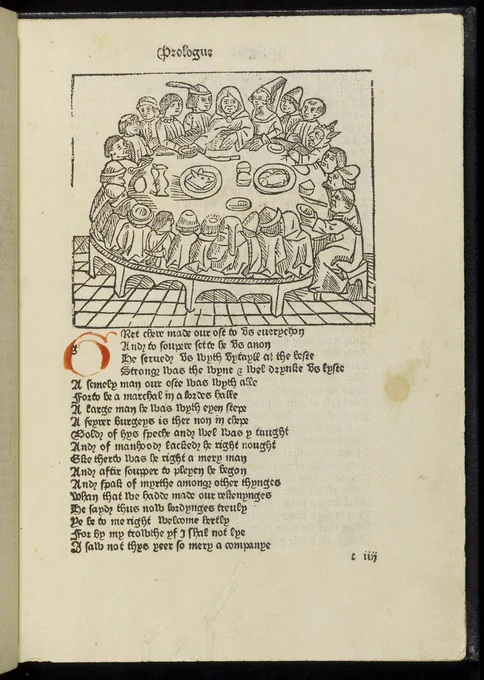 Prologue
Gret chere made our ost to vs euerychon
And to souper sette he vs anon
He serued vs wyth vytayll at the beste
Strong was the wyne & wel drynke vs lyste
A semely man our oste was wyth alle
Forto be a marchal in a lordes halle
A large man he was wyth eyen stepe
A feyrer burgeys is ther non in chepe
Bold of hys speche and wel was y taught
And of manhood lacked he right nought
Eke therto was he right a mery man
And aftir souper to pleyen he began
And spak of myrthe among other thynges
Whan that we hadde made our rekenynges
He sayd thus now lordynges treuly
Ye be to me right welcome hertly
For by my trowthe yf I shal not lye
I saw not thys yeer so mery a companye
c iiij